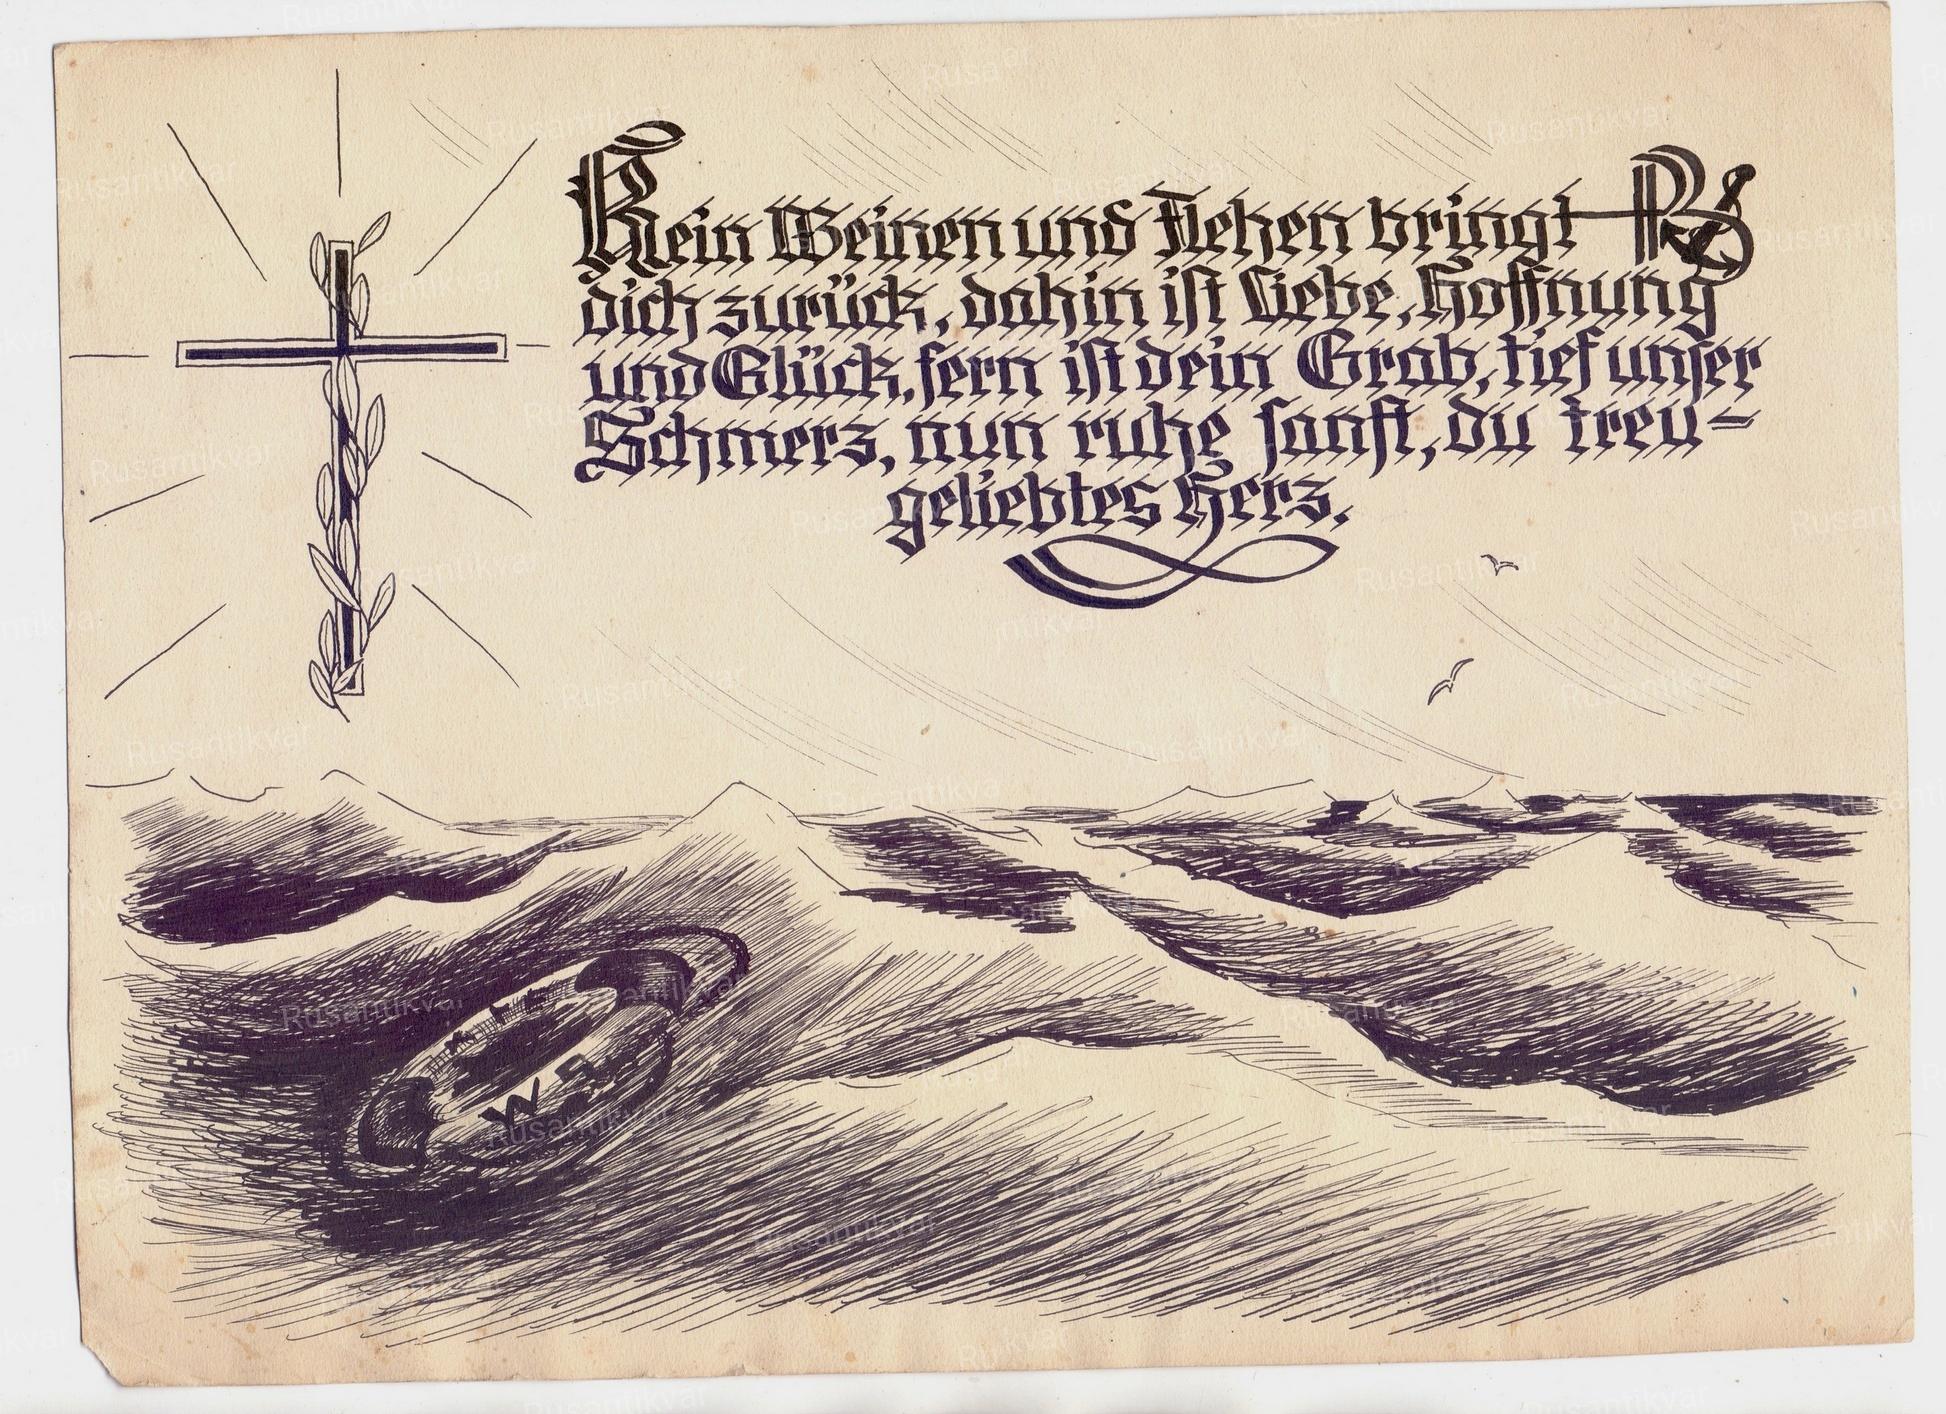 Kein Weinen und Flehen bringt
dich zurück, dahin ist Liebe, Hoffnung
und Glück, fern ist dein Grab, tief unser
Schmerz, nun ruhe sanft, du treu-
geliebtes Herz.
Rusantikvar